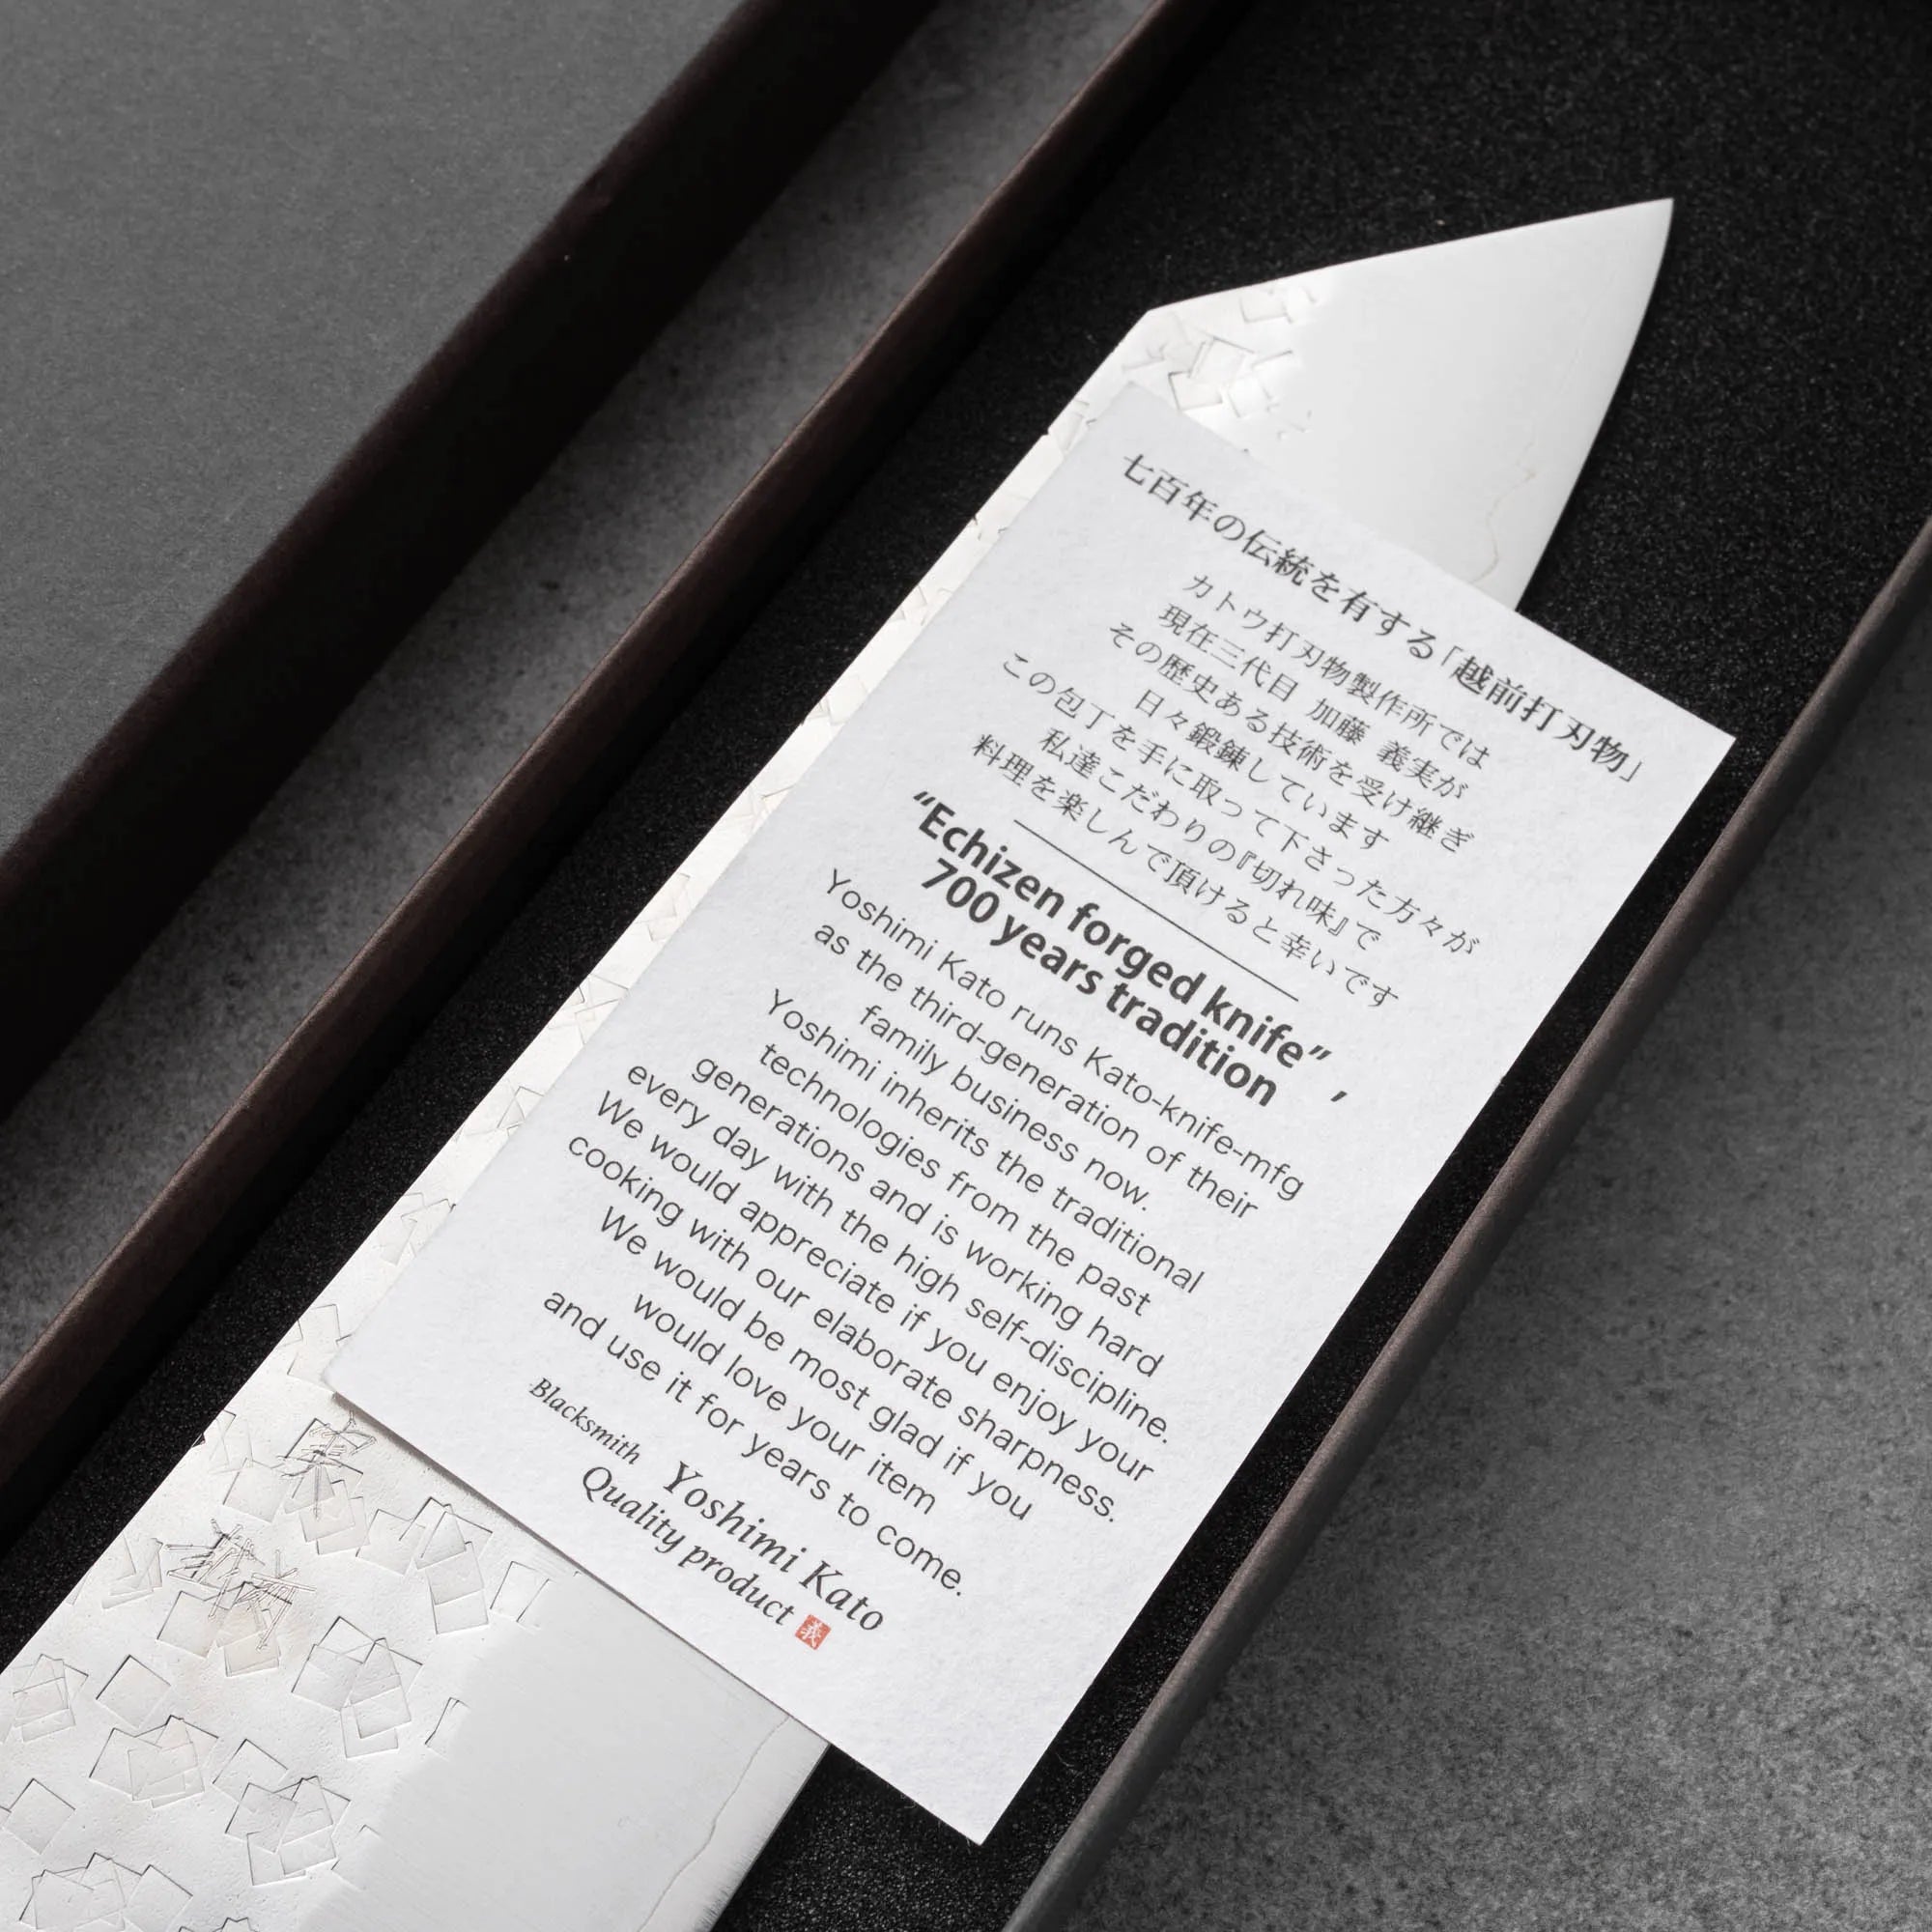 七百年の伝統を有する「越前打刃物」
カトウ打刃物製作所では
現在三代目 加藤 義実が
その歴史ある技術を受け継ぎ
日々鍛錬しています
この包丁を手に取って下さった方々が
私達こだわりの『切れ味』で
料理を楽しんで頂けると幸いです
“Echizen forged knife” ,
700 years tradition
Yoshimi Kato runs Kato-knife-mfg
as the third-generation of their
family business now.
Yoshimi inherits the traditional
technologies from the past
generations and is working hard
every day with the high self-discipline.
We would appreciate if you enjoy your
cooking with our elaborate sharpness.
We would be most glad if you
would love your item
and use it for years to come.
Blacksmith Yoshimi Kato
Quality product 義
実